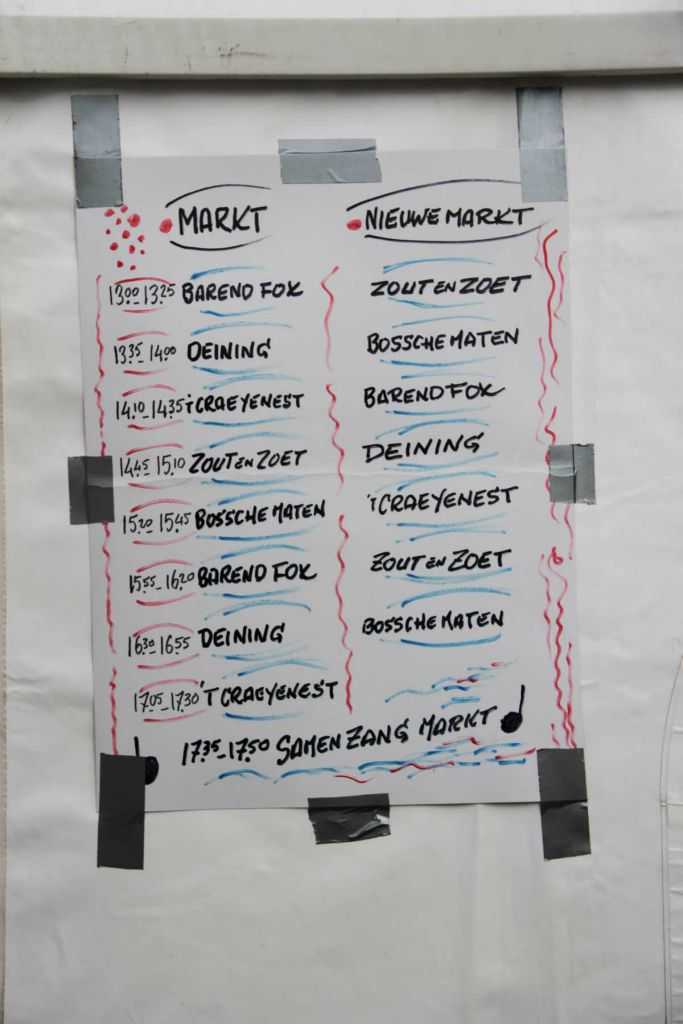 MARKT NIEUWE MARKT
13.00 13.25 BAREND FOX ZOUT EN ZOET
13.35 14.00 DEINING BOSSCHE MATEN
14.10-14.35 'T CRAEYENEST BAREND FOX
14.45 15.10 ZOUT EN ZOET DEINING
15.20 15.45 BOSSCHE MATEN 'T CRAEYENEST
15.55-16.20 BAREND FOX ZOUT EN ZOET
16.30 16.55 DEINING BOSSCHE MATEN
17.05-17.30 'T CRAEYENEST
17.35-17.50 SAMEN ZANG MARKT